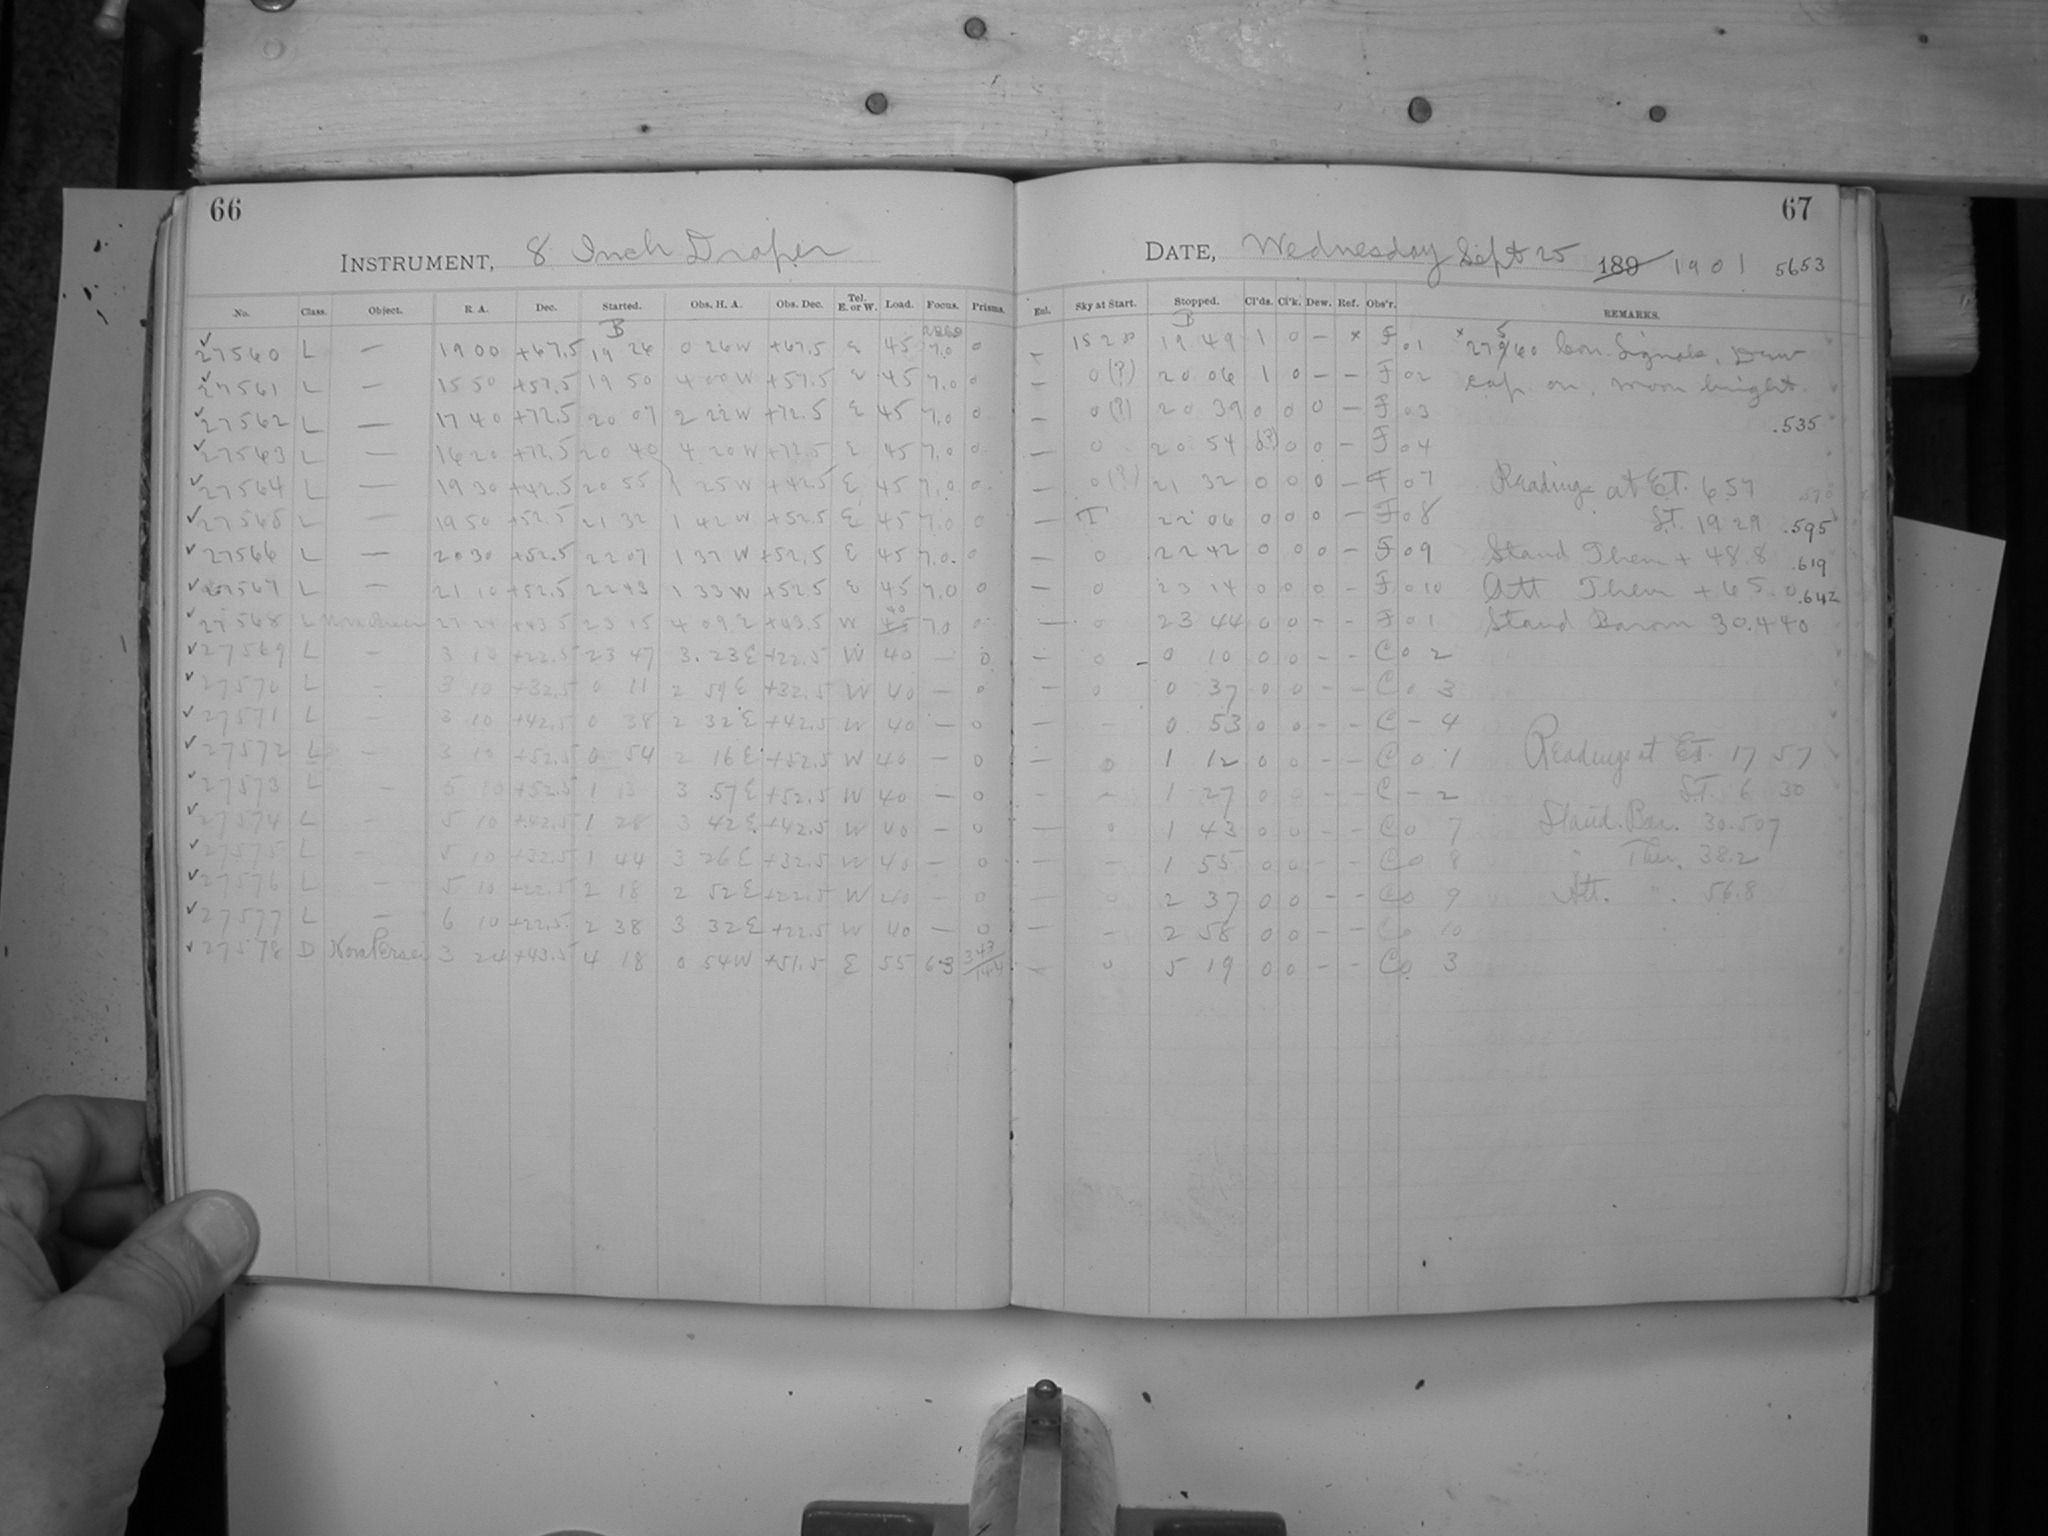 66
INSTRUMENT, 8 Inch Draper
No. Class. Object. R. A. Dec. Started. Obs. H. A. Obs. Dec. Tel. E. or W. Load. Focus. Prisms.
B
27560 L — 19 00 +67.5 19 26 0 26 W +67.5 E 45 7.0 0
27561 L — 15 50 +57.5 19 50 4 00 W +57.5 E 45 7.0 0
27562 L — 17 40 +72.5 20 07 2 22 W +72.5 E 45 7.0 0
27563 L — 16 20 +72.5 20 40 4 20 W +72.5 E 45 7.0 0
27564 L — 19 30 +42.5 20 55 1 25 W +42.5 E 45 7.0 0
27565 L — 19 50 +52.5 21 32 1 42 W +52.5 E 45 7.0 0
27566 L — 20 30 +52.5 22 07 1 37 W +52.5 E 45 7.0
27567 L — 21 10 +52.5 22 43 1 33 W +52.5 E 45 7.0 0
27568 L 23 15 4 09 E +43.5 W 40 7.0 0
27569 L — 3 10 +22.5 23 47 3 23 E +22.5 W 40 — 0
27570 L — 3 10 +32.5 0 11 2 59 E +32.5 W 40 — 0
27571 L — 3 10 +42.5 0 38 2 32 E +42.5 W 40 — 0
27572 L — 3 10 +52.5 0 54 2 16 E +52.5 W 40 — 0
27573 L — 5 10 +52.5 1 13 3 57 E +52.5 W 40 — 0
27574 L — 5 10 +42.5 1 28 3 42 E +42.5 W 40 — 0
27575 L — 5 10 +32.5 1 44 3 26 E +32.5 W 40 — 0
27576 L — 5 10 +22.5 2 18 2 52 E +22.5 W 40 — 0
27577 L — 6 10 +22.5 2 38 3 32 E +22.5 W 40 — 0
27578 D Nova Persei 3 24 +43.5 4 18 0 54 W +51.5 E 55 6.3
67
DATE, Wednesday Sept 25 189 1901 5653
Enl. Sky at Start. Stopped. Cl'ds. Cl'k. Dew. Ref. Obs'r. REMARKS.
B
— 19 49 1 0 — x F 01 x 27560 Con. Signals, Dew
— 0 (?) 20 06 1 0 — — F 02 cap on, moon bright.
— 0 (?) 20 39 0 0 0 — F 03 .535
— 0 20 54 0(?) 0 0 — F 04
— 0 (?) 21 32 0 0 0 — F 07 Readings at E.T. 6 57
— T 22 06 0 0 0 — F 08 S.T. 19 29 .595
— 0 22 42 0 0 0 — F 09 Stand Them + 48.8 .619
— 0 23 14 0 0 0 — F 010 Att Them + 65.0 .642
— 0 23 44 0 0 — — F 01 Stand Barom 30.440
— 0 0 10 0 0 — — C 0 2
— 0 0 37 0 0 — — C 0 3
— — 0 53 0 0 — — C — 4
— 0 1 12 0 0 — — C 0 1 Readings at E.T. 17 57
— — 1 27 0 0 — — C — 2 S.T. 6 30
— 0 1 43 0 0 — — C 0 7 Stand. Bar. 30.507
— — 1 55 0 0 — — C 0 8 " Ther. 38.2
— 0 2 37 0 0 — — C 0 9 Att. " 56.8
— — 2 58 0 0 — — C 0 10
— 0 5 19 0 0 — — C 0 3